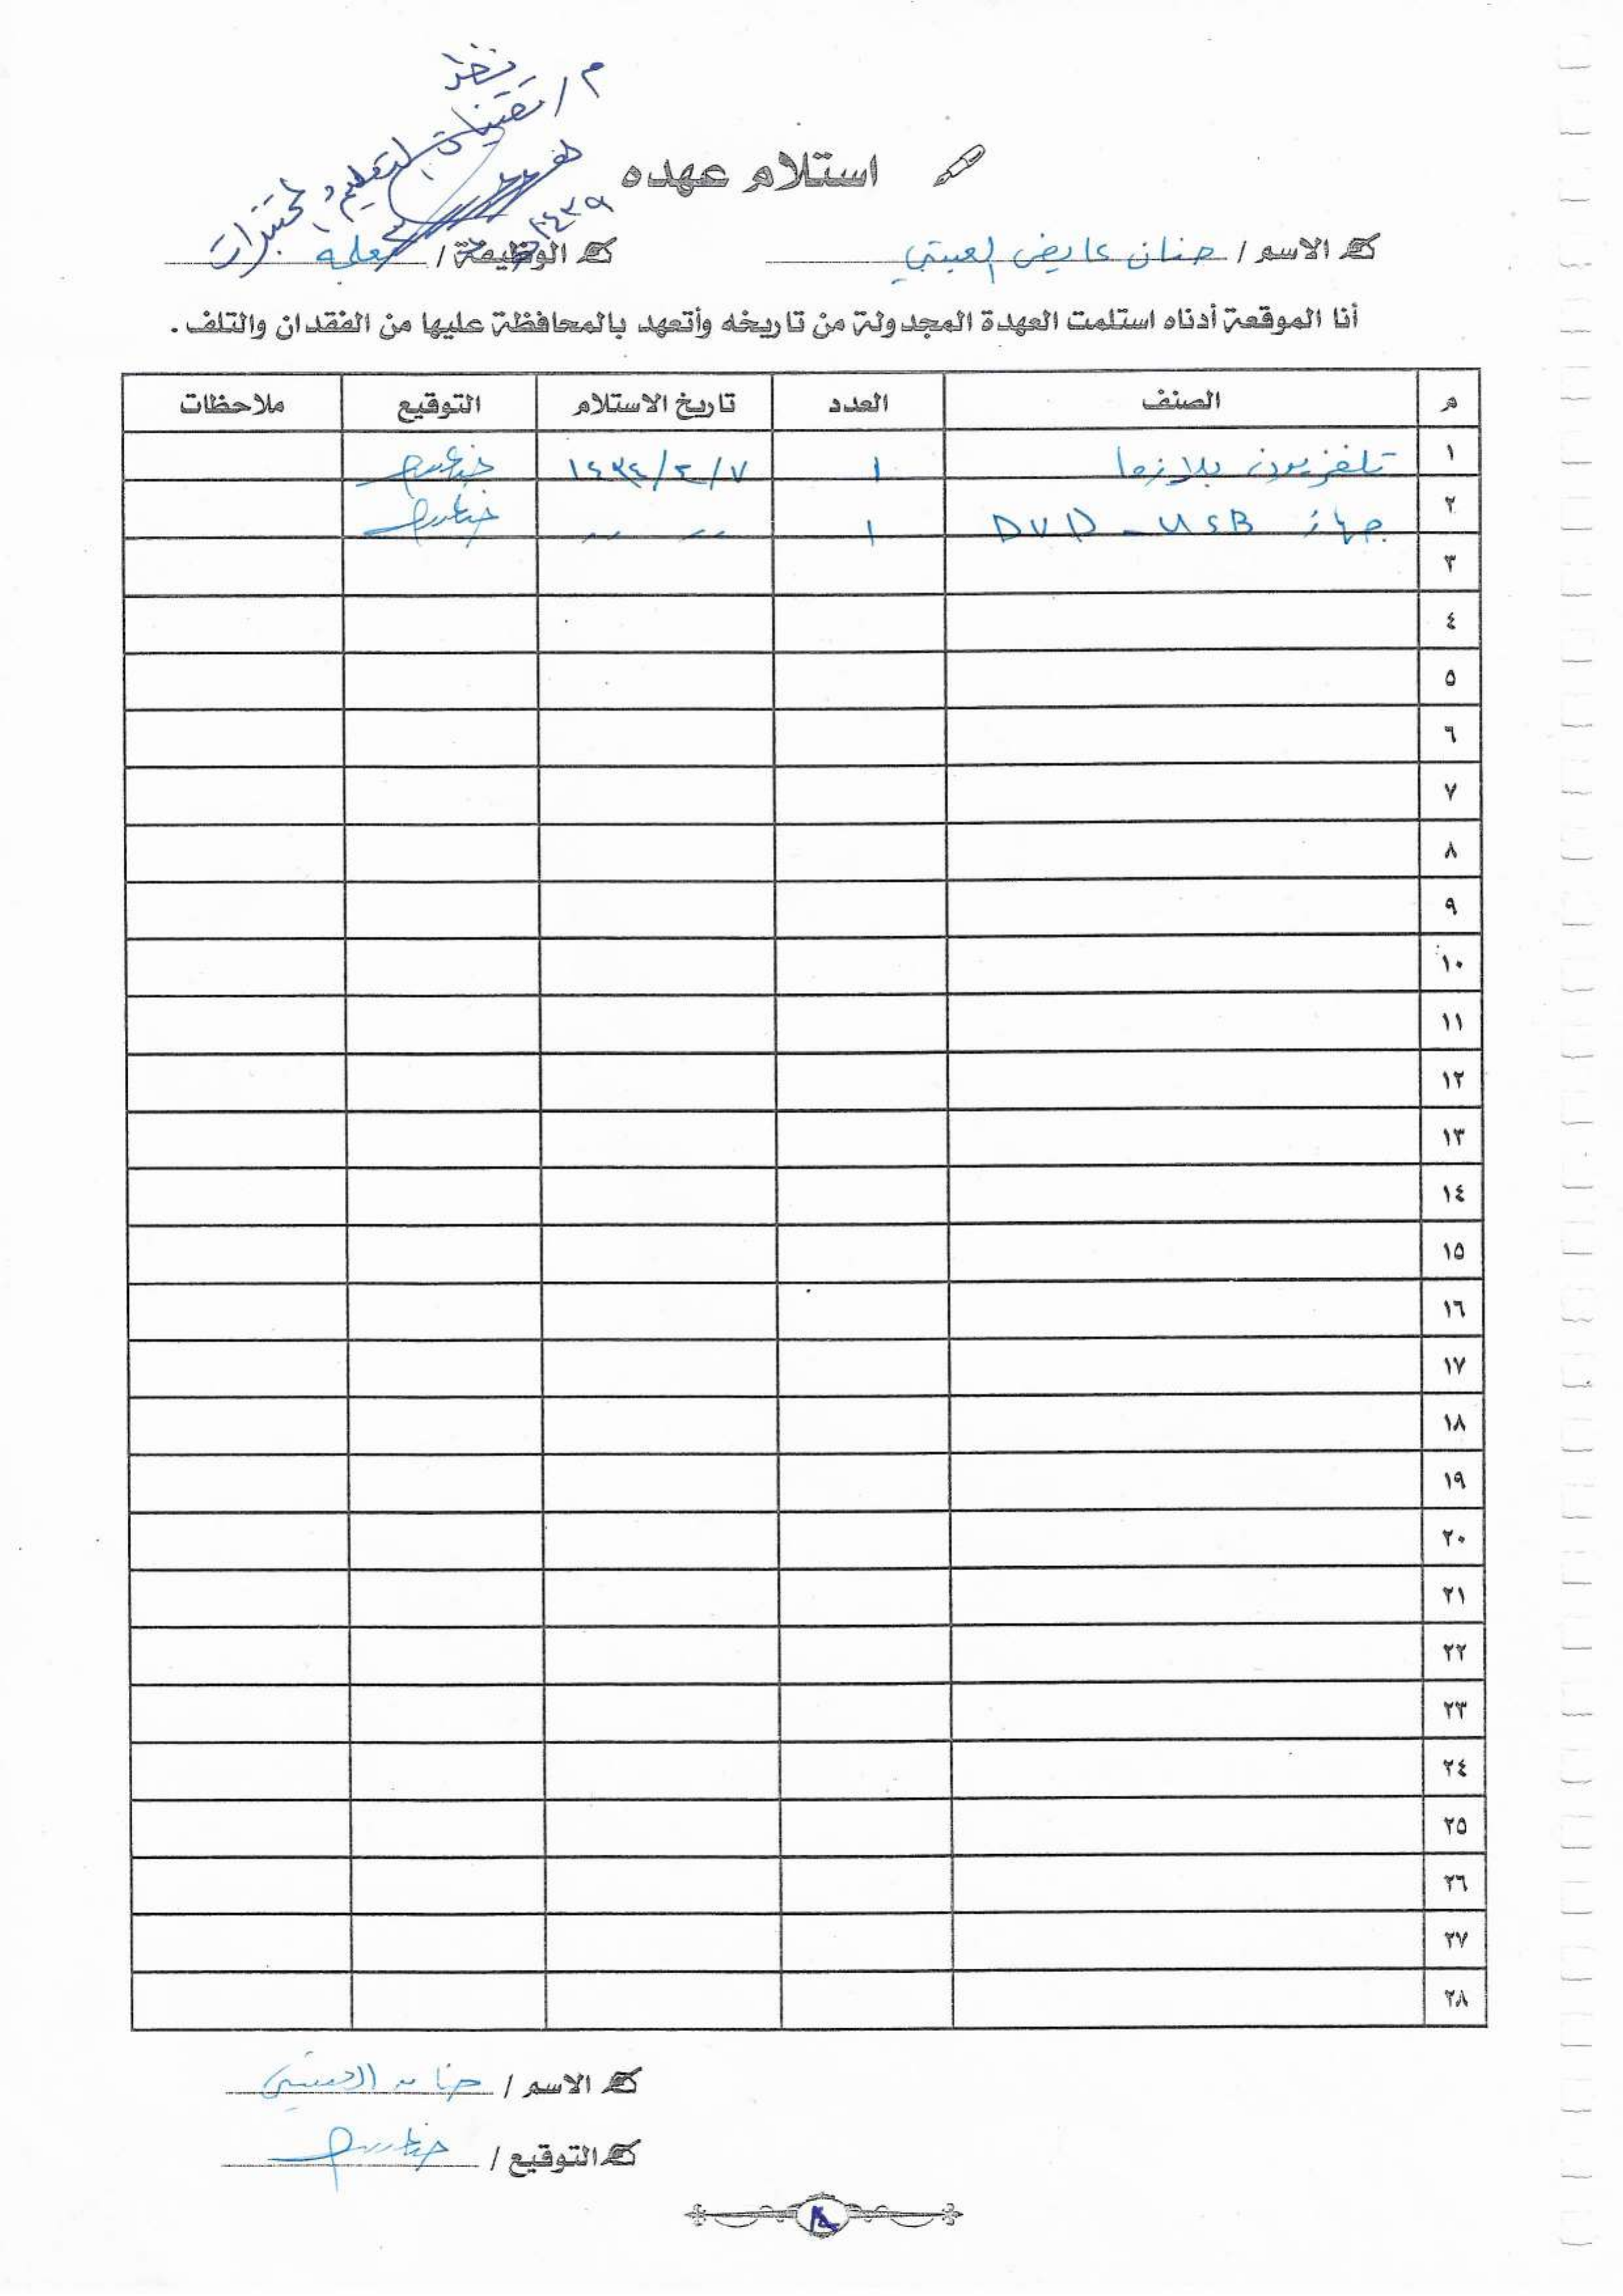 نظر
م / تقنيات التعليم و المختبرات
١٤٣٩
استلام عهده
الاسم / حنان عايض العتيبي
الوظيفة / معلمة
أنا الموقعة أدناه استلمت العهدة المجدولة من تاريخه وأتعهد بالمحافظة عليها من الفقدان والتلف .
م الصنف العدد تاريخ الاستلام التوقيع ملاحظات
١ تلفزيون بلازما ١ ٧/٢/١٤٣٤
٢ جهاز DVD - USB ١〃 〃
٣
٤
٥
٦
٧
٨
٩
١٠
١١
١٢
١٣
١٤
١٥
١٦
١٧
١٨
١٩
٢٠
٢١
٢٢
٢٣
٢٤
٢٥
٢٦
٢٧
٢٨
الاسم / حنان العتيبي
التوقيع /